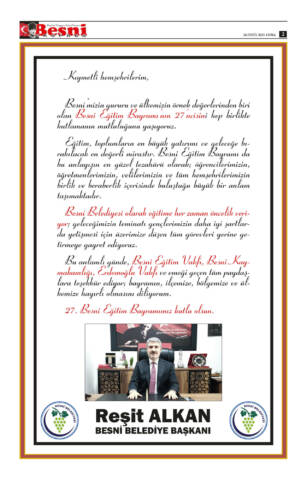 Besni
2
Kıymetli hemşehrilerim,
Besni'mizin gururu ve ülkemizin örnek değerlerinden biri
olan Besni Eğitim Bayramı'nın 27'ncisini hep birlikte
kutlamanın mutluluğunu yaşıyoruz.
Eğitim, toplumların en büyük yatırımı ve geleceğe bı-
rakılacak en değerli mirastır. Besni Eğitim Bayramı da
bu anlayışın en güzel tezahürü olarak; öğrencilerimizin,
öğretmenlerimizin, velilerimizin ve tüm hemşehrilerimizin
birlik ve beraberlik içerisinde buluştuğu büyük bir anlam
taşımaktadır.
Besni Belediyesi olarak eğitime her zaman öncelik veri-
yor; geleceğimizin teminatı gençlerimizin daha iyi şartlar-
da yetişmesi için üzerimize düşen tüm görevleri yerine ge-
tirmeye gayret ediyoruz.
Bu anlamlı günde, Besni Eğitim Vakfı, Besni Kay-
makamlığı, Erdemoğlu Vakfı ve emeği geçen tüm paydaş-
lara teşekkür ediyor; bayramın, ilçemize, bölgemize ve ül-
kemize hayırlı olmasını diliyorum.
27. Besni Eğitim Bayramımız kutlu olsun.
Reşit ALKAN
BESNİ BELEDİYE BAŞKANI